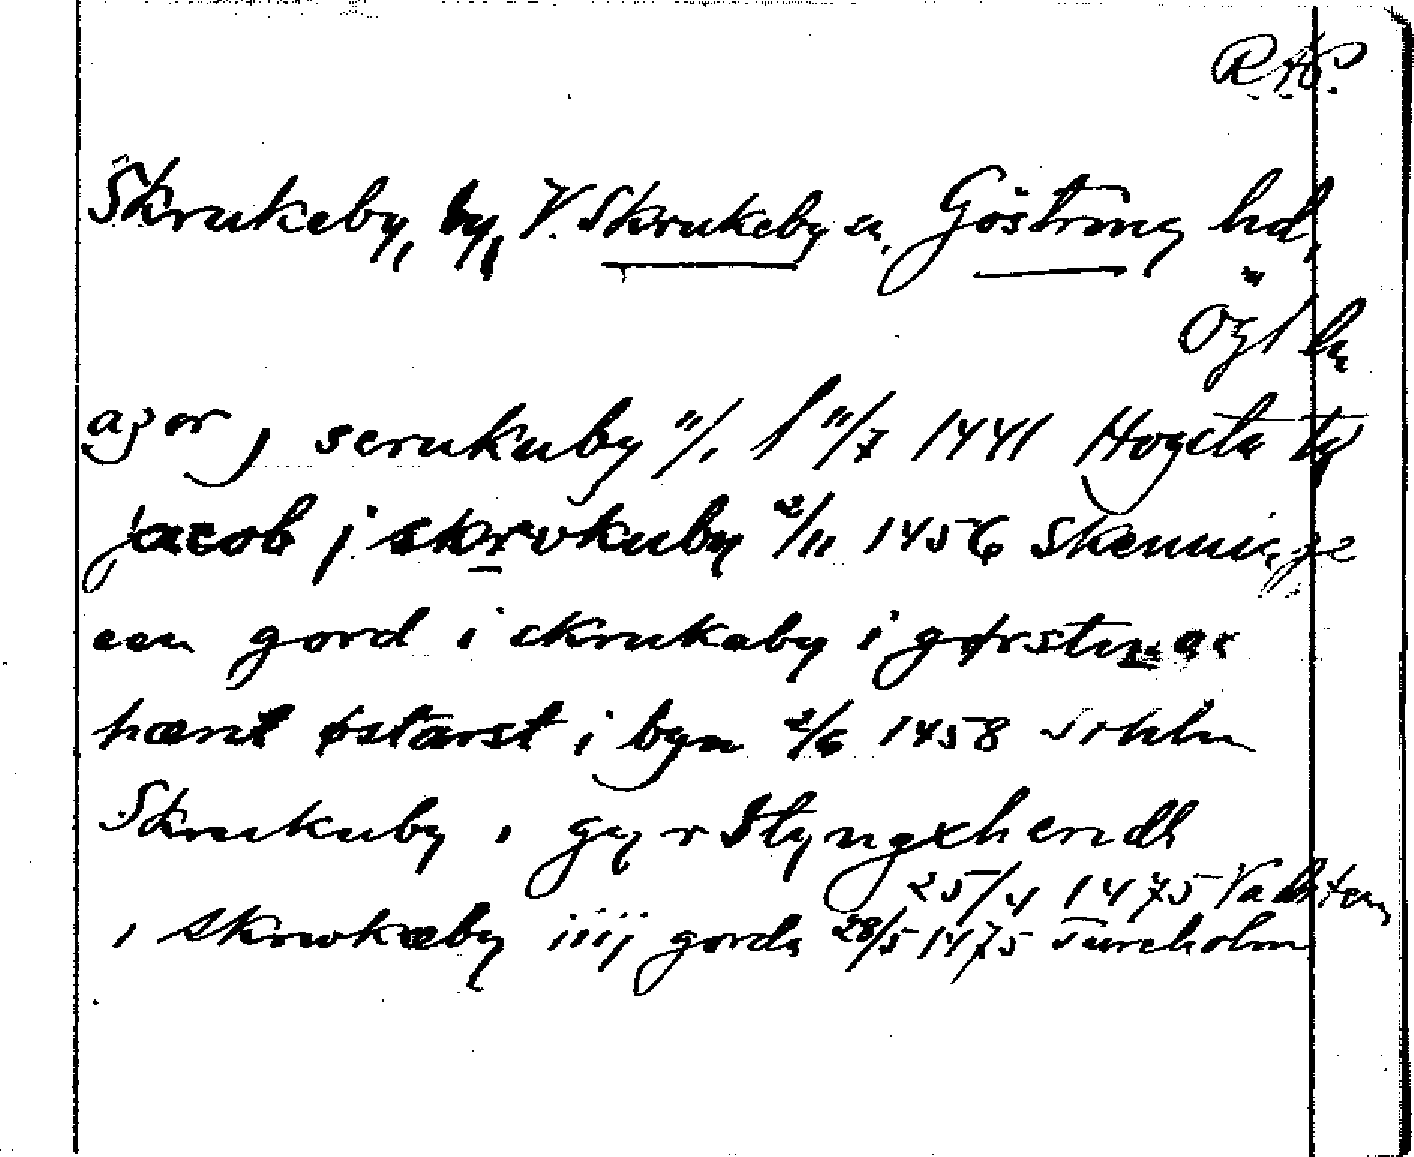 R.A.P.
Skrukeby, by, V. Skrukeby sn, Göstring hd,
Ögl
j scrukuby 11/7 1441 Hogsta
jacob j skrvkuby 2/11 1456 Skenninge
een gord i skrukaby i gørstinga
hæret østarst i byn 2/6 1458 Sthlm
Skrukuby i gyrstyngxhendh
25/4 1475 Vadsten
i skrwkæby iiij gorda 28/5 1475 Tureholm